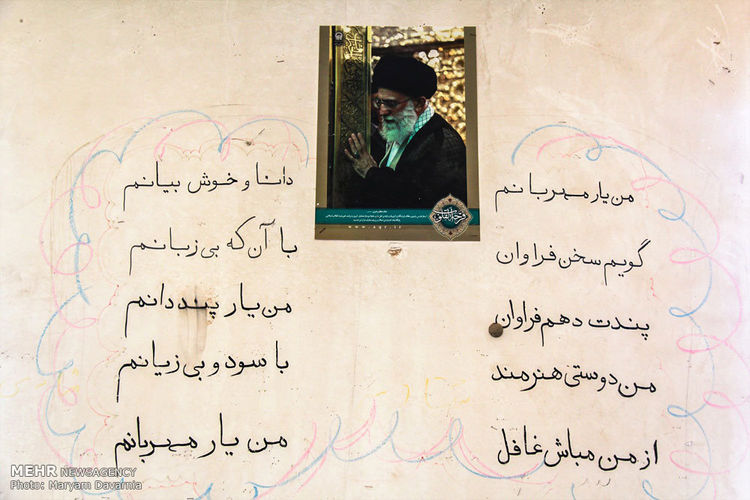 من یار مهربانم
دانا و خوش بیانم
گویم سخن فراوان
با آن که بی زبانم
پندت دهم فراوان
من یار پند دانم
من دوستی هنرمند
با سود و بی زیانم
از من مباش غافل
من یار مهربانم
www.aqr.ir
MEHR NEWSAGENCY
Photo: Maryam Davarnia